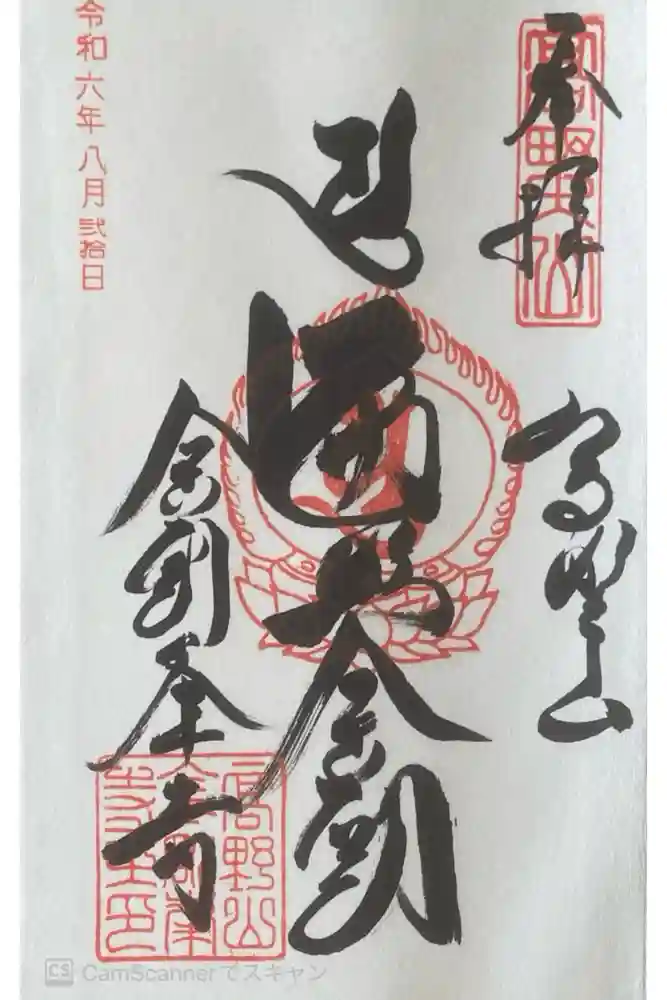 奉拝
高野山
高野山
遍照金剛
金剛峯寺
高野山
金剛峯
令和六年八月弐拾日
CS CamScannerでスキャン